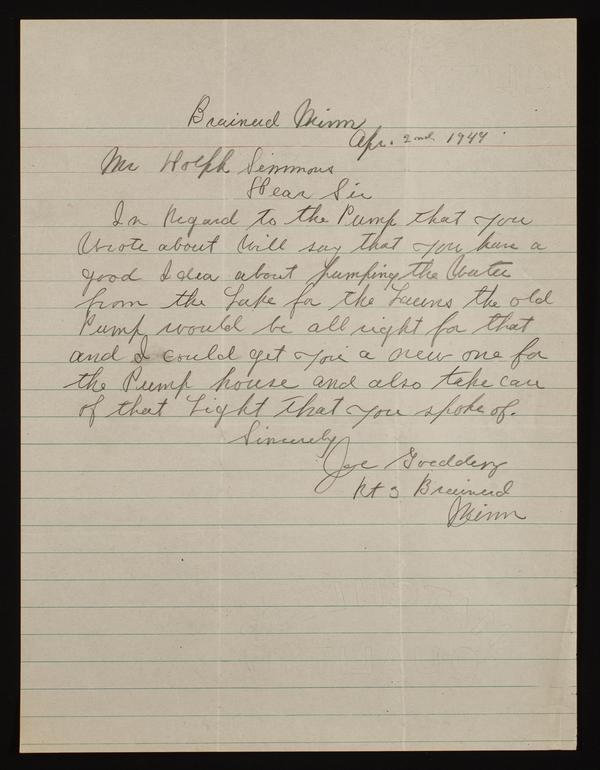 Brainerd Minn
Apr. 2nd 1944
Mr Rolph Simmons
Dear Sir
In Regard to the Pump that you
Wrote about Will say that you have a
good Idea about Pumping the Water
from the Lake for the Lawns the old
Pump would be all right for that
and I could get you a new one for
the Pump house and also take care
of that Light that you spoke of.
Sincerely
Joe
Rt 3 Brainerd
Minn